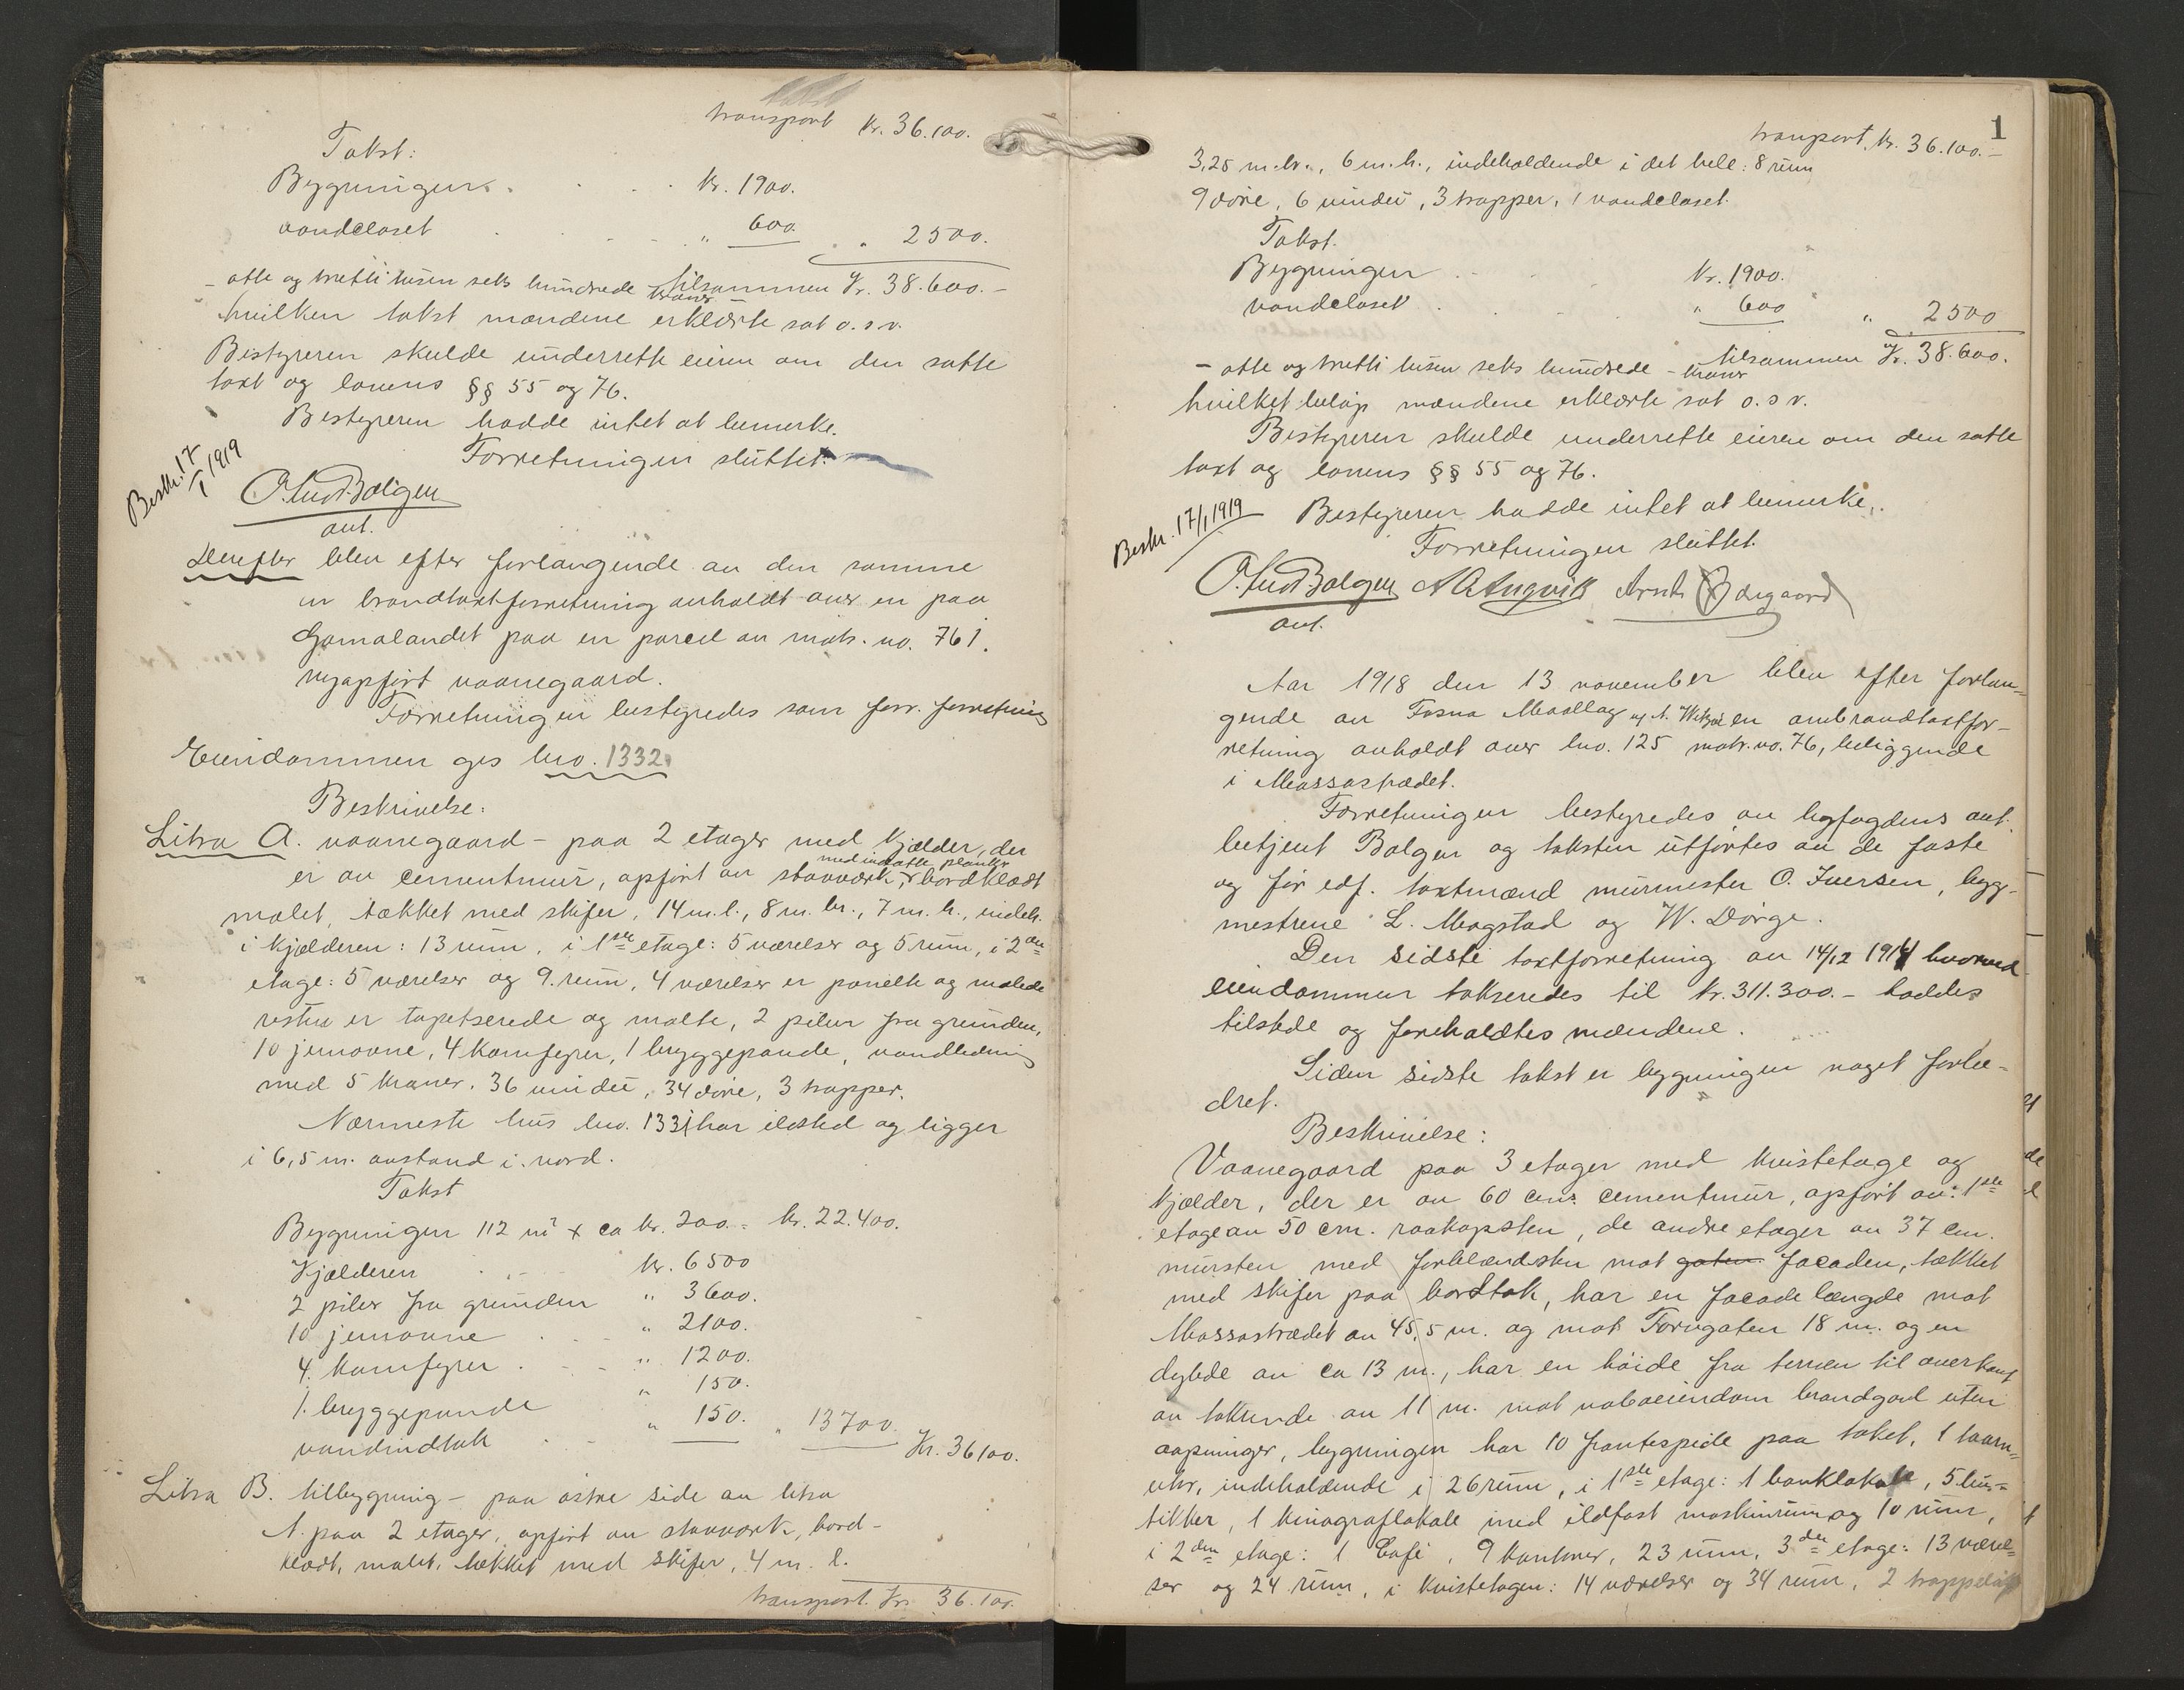 transport kr. 36.100.
Takst:
Bygningen . . . . kr. 1900.
vandcloset . . . . " 600. " 2500.
tilsammen Kr. 38.600.-
- otte og tretti tusen seks hundrede kroner -
hvilken takst mændene erklærte sat o.s.v.
Bestyreren skulde underrette eieren om den satte
taxt og lovens §§ 55 og 76.
Bestyreren hadde intet at bemerke.
Forretningen sluttet.
Beskr. 17/1 1919
O. Ludv. Bolgen
aut.
Derefter blev efter forlangende av den samme
en brandtaxtforretning avholdt over en paa
Gomalandet paa en parcel av matr. no. 761.
nyopført vaanegaard.
Forretningen bestyredes som forr. forretning
Eiendommen gis bno. 1332.
Beskrivelse:
Litra A. vaanegaard - paa 2 etager med kjælder, der
er av cementmur, opført av stavværk, med indsatte planker, bordklædt
malet, tækket med skifer, 14 m. l., 8 m. br., 7 m. h., indeh.
i kjælderen: 13 rum, i 1ste etage: 5 værelser og 5 rum, i 2den
etage: 5 værelser og 9. rum, 4 værelser er panelte og malede
resten er tapetserede og malte, 2 piber fra grunden,
10 jernovne, 4 komfyrer, 1 bryggepande, vandledning
med 5 kraner. 36 vinduer, 34 døre, 3 trapper.
Nærmeste hus bno. 1331 har ildsted og ligger
i 6,5 m. avstand i nord.
Takst
Bygningen 112 m² x ca kr. 200. = kr. 22.400.
Kjælderen . . . kr. 6500
2 piber fra grunden " 3600.
10 jernovne . . . " 2100.
4. komfyrer . . . " 1200.
1. bryggepande " 150.
vandindtak . . " 150. " 13700. Kr. 36100.
Litra B. tilbygning - paa østre side av litra
A. paa 2 etager, opført av stavværk, bord-
klædt, malet, tækket med skifer, 4 m. l.
transport. Kr. 36.100.
1
transport. kr. 36.100.-
3,25 m. br., 6 m. h., indeholdende i det hele: 8 rum
9 døre, 6 vinduer, 3 trapper, 1 vandcloset.
Takst.
Bygningen . . . kr. 1900.
vandcloset . . . " 600 " 2500
tilsammen Kr. 38.600.
- otte og tretti tusen seks hundrede kroner -
hvilket beløp mændene erklærte sat o.s.v.
Bestyreren skulde underrette eieren om den satte
taxt og lovens §§ 55 og 76.
Beskr. 17/1 1919 Bestyreren hadde intet at bemerke.
Forretningen sluttet.
O. Ludv. Bolgen A Angvik Arnt Ødegaard
aut.
Aar 1918 den 13 november blev efter forlan-
gende av Fosna Maallag og A. en ombrandtaxtfor-
retning avholdt over bno. 125 matr. no. 76, beliggende
i Massastrædet.
Forretningen bestyredes av byfogdens aut.
betjent Bolgen og taksten utførtes av de faste
og før edf. taxtmænd murmester O. Iversen, bygg-
mestrene L. Magstad og W. Dørge.
Den sidste taxtforretning av 14/12 1914 hvorved
eiendommen takseredes til kr. 311.300.- haddes
tilstede og foreholdtes mændene.
Siden sidste takst er bygningen noget forbe-
dret.
Beskrivelse:
Vaanegaard paa 3 etager med kvistetage og
kjælder, der er av 60 cm. cementmur, opført av: 1ste
etage av 50 cm. raakopsten, de andre etager av 37 cm.
mursten med forblændsten mot gaten facaden, tækket
med skifer paa bordtak, har en facadelængde mot
Massastrædet av 45,5 m. og mot Torvgaten 18 m. og en
dybde av ca 13 m., har en høide fra terræn til overkant
av takrende av 11 m. mot naboeiendom brandgavl uten
aapninger, bygningen har 10 frontespice paa taket, 1 taarn-
uhr, indeholdende i 26 rum, i 1ste etage: 1 banklokale, 5 bu-
tikker, 1 kinograflokale med ildfast maskinrum og 10 rum,
i 2den etage: 1 Café, 9 kontorer, 23 rum, 3die etage: 13 værel-
ser og 24 rum, i kvistetagen: 14 værelser og 34 rum, 2 trappeløp